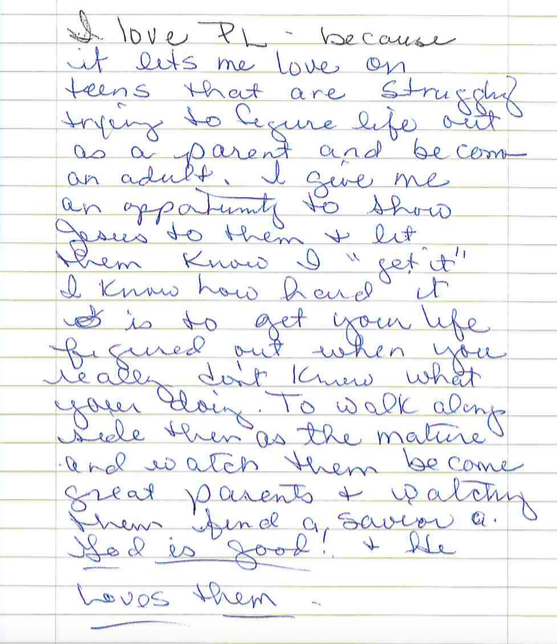 I love PL - because
it lets me love on
teens that are struggling
trying to figure life out
as a parent and becom
an adult. I give me
an oppatunity to show
Jesus to them + let
them know I "get it"
I know how hard it
is to get your life
figured out when you
really don't know what
your doing. To walk along
side them as the mature
and watch them become
great parents + watching
them find a savior a.
God is good! + He
Loves them -